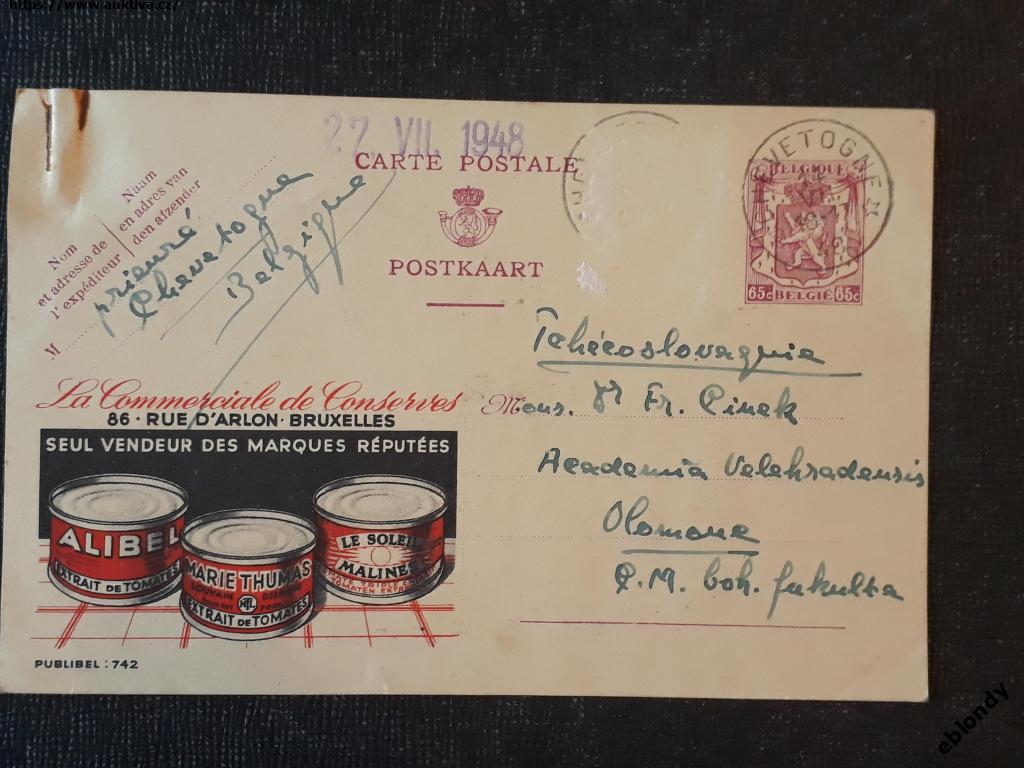 https://www.auktiva.cz/
27. VII. 1948
CARTE POSTALE
POSTKAART
CHEVETOGNE
BELGIQUE
65c BELGIË 65c
Nom
et adresse de
l'expéditeur
Naam
en adres van
den afzender
M
prieuré
Chevetogne
Belgique
Tchécoslovaquie
Mons. Fr. Cinek
Academia Velehradensis
Olomouc
C. M. boh. fakulta
La Commerciale de Conserves
86 · RUE D'ARLON · BRUXELLES
SEUL VENDEUR DES MARQUES RÉPUTÉES
ALIBEL
EXTRAIT DE TOMATES
MARIE THUMAS
LOUVAIN
EXTRAIT DE TOMATES
LE SOLEIL
MALINES
PUBLIBEL : 742
eblondy